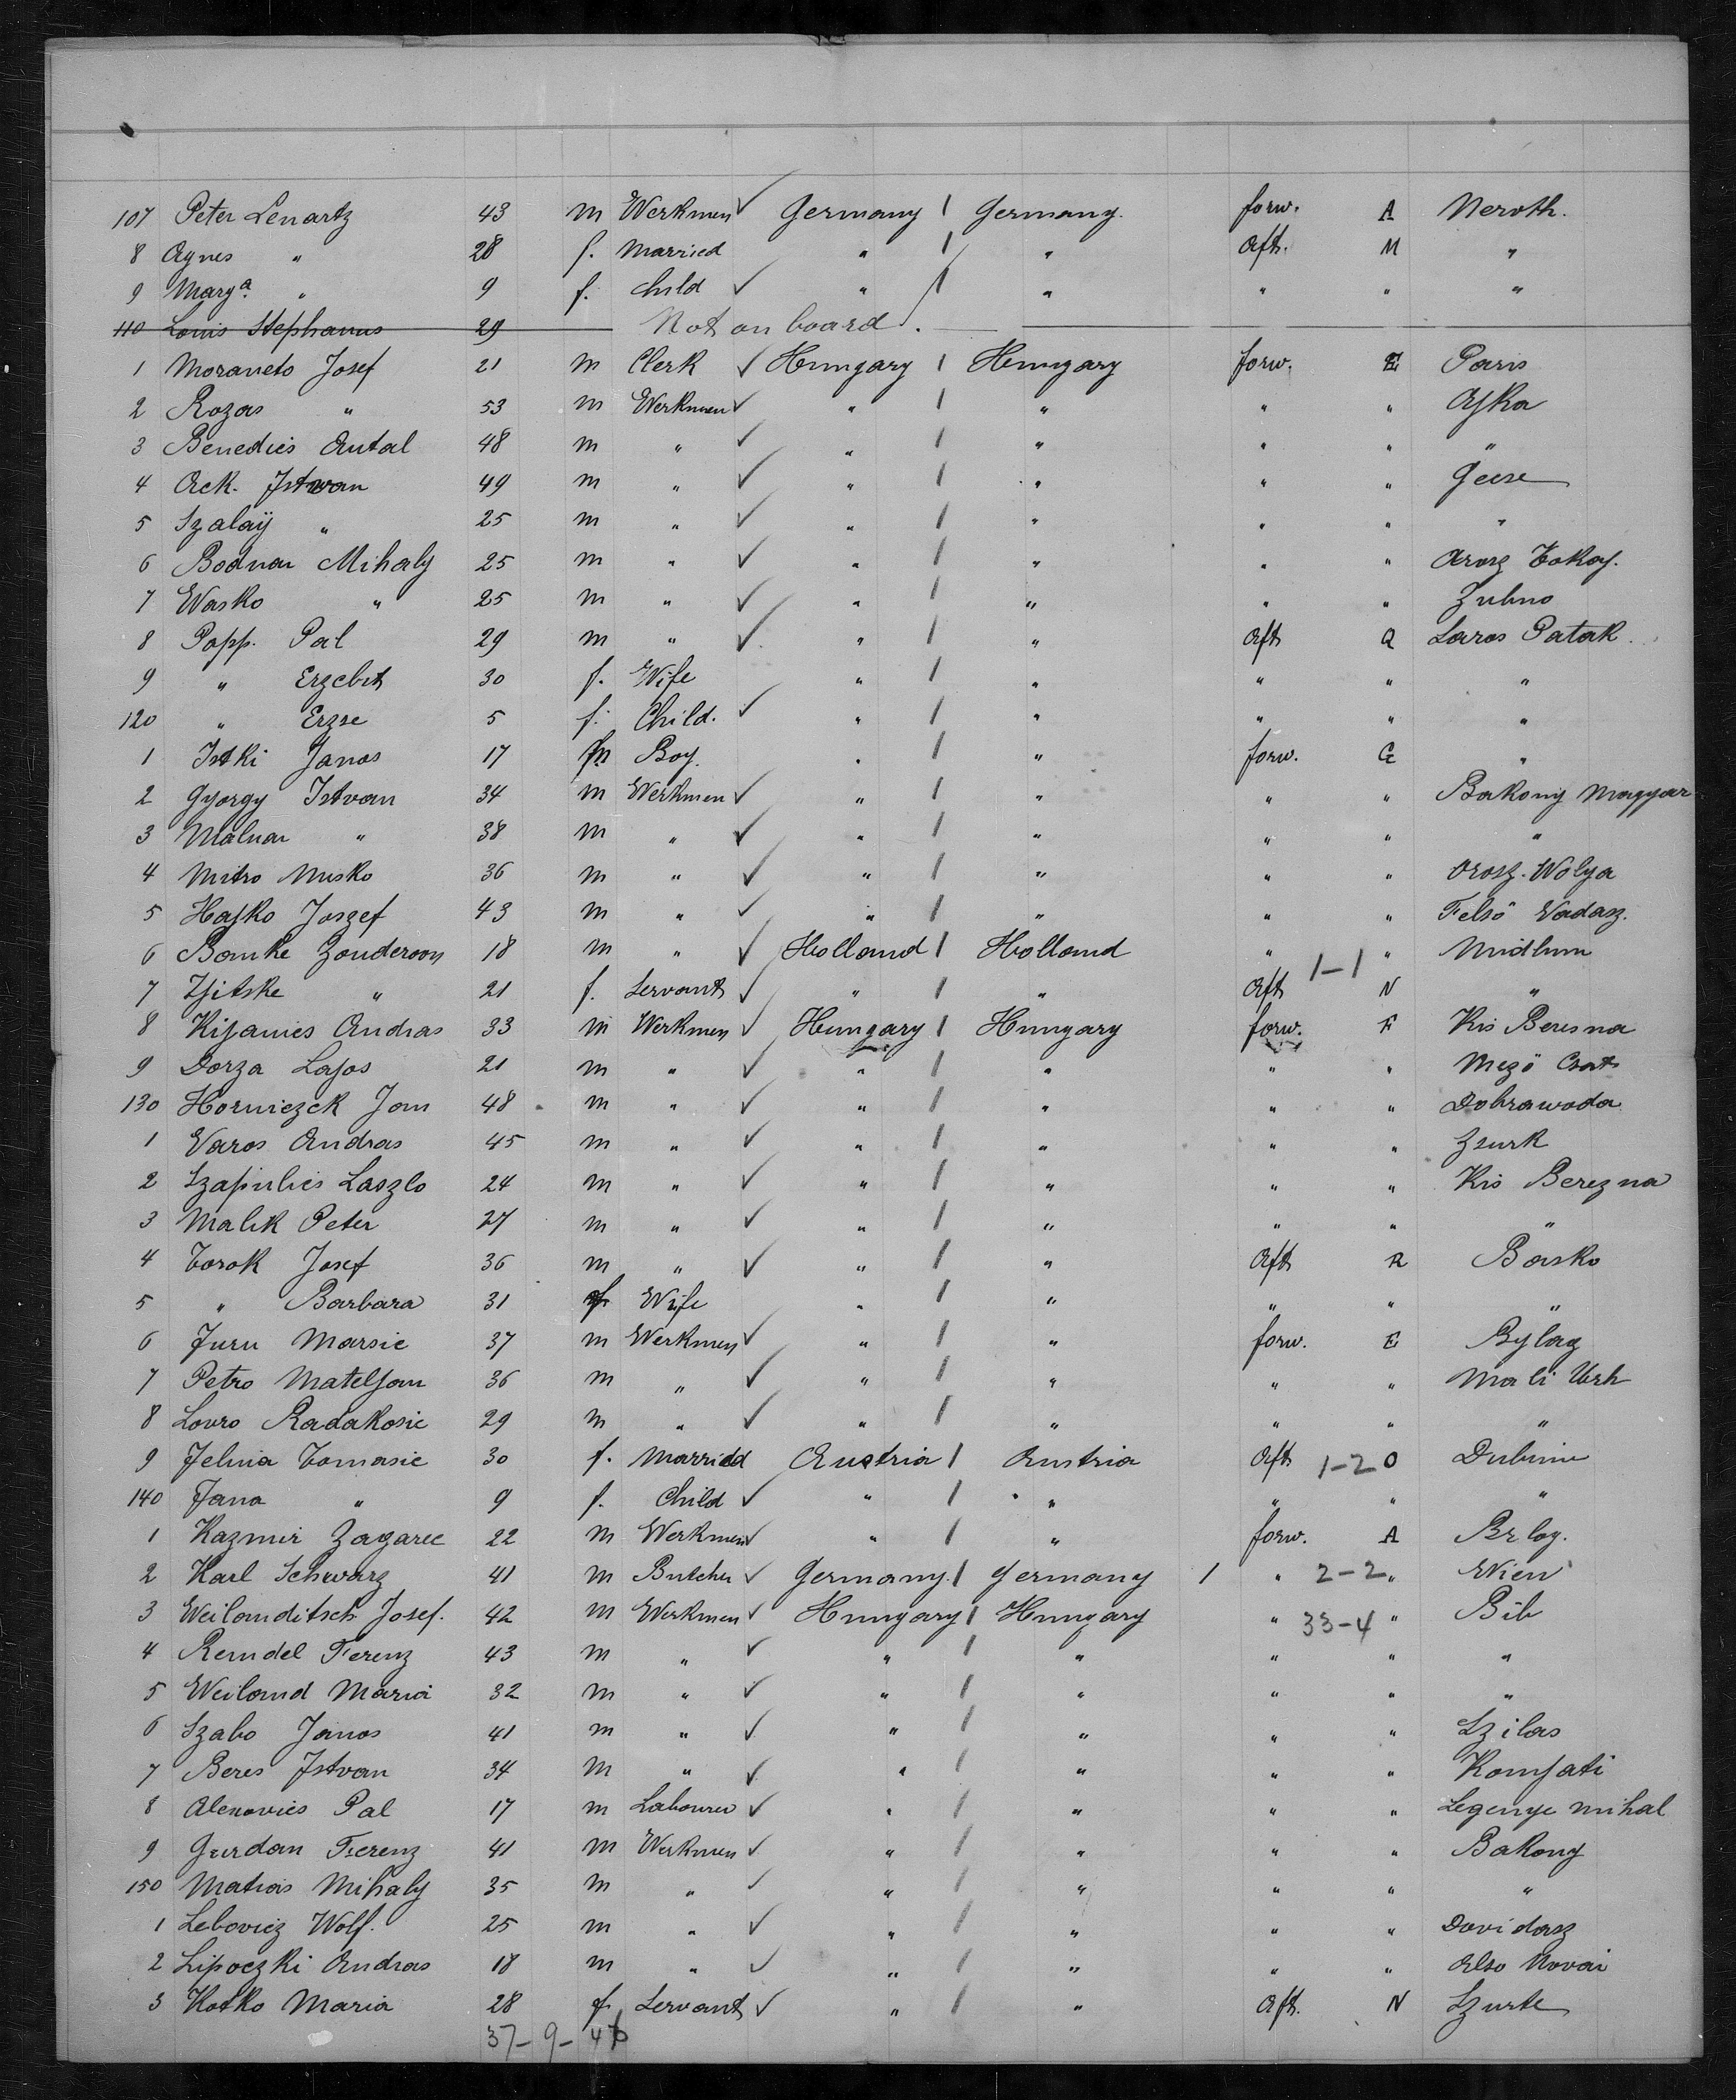 107 Peter Lenartz 43 m Werkmen ✓ Germany 1 Germany. forw. A Neroth.
8 Agnes " 28 f. Married " 1 " Aft. M "
9 Marg.a " 9 f. child ✓ " 1 " " " "
110 Louis Stephanus 29 Not on board.
1 Moraneto Josef 21 m Clerk ✓ Hungary 1 Hungary forw. E Paris
2 Rozas " 53 m Werkmen ✓ " 1 " " " Ajka
3 Benedics Antal 48 m " ✓ " 1 " " " "
4 Ack. Istvan 49 m " ✓ " 1 " " "
5 Szalaÿ " 25 m " ✓ " 1 " " " "
6 Bodnar Mihaly 25 m " ✓ " 1 " " " Arosz Tokay.
7 Wasko " 25 m " ✓ " 1 " " " Zubno
8 Popp. Pal 29 m " ✓ " 1 " Aft Q Saros Patak.
9 " Erzebet 30 f. Wife " 1 " " " "
120 " Erzse 5 f. Child. ✓ " 1 " " " "
1 Istki Janos 17 m Boy. " 1 " forw. G "
2 Gyorgy Istvan 34 m Werkmen ✓ " 1 " " " Bakony Magyar
3 Malnar " 38 m " ✓ " 1 " " " "
4 Mitro Musko 36 m " ✓ " 1 " " " Orosz. Wolya
5 Hajko Joszef 43 m " ✓ " 1 " " " Felsö Vadasz.
6 Bauke Zonderoon 18 m " ✓ Holland 1 Holland " 1-1 " Midlum
7 Tjitske " 21 f. Servant ✓ " 1 " Aft N "
8 Kijanics Andras 33 m Werkmen ✓ Hungary 1 Hungary forw. F Kis Beresna
9 Dorza Lajos 21 m " ✓ " 1 " " " Mezö Csat
130 Horniczek Jan 48 m " ✓ " 1 " " " Dobrawoda
1 Varos Andras 45 m " ✓ " 1 " " " Zsurk
2 Szapulics Laszlo 24 m " ✓ " 1 " " " Kis Berezna
3 Malik Peter 27 m " ✓ " 1 " " " "
4 Torok Josef 36 m " ✓ " 1 " Aft R Basko
5 " Barbara 31 f Wife " 1 " " " "
6 Juru Marsic 37 m Werkmen ✓ " 1 " forw. E Bylag
7 Petro Mateljan 36 m " ✓ " 1 " " " Mali Vrh
8 Lovro Radakosic 29 m " ✓ " 1 " " " "
9 Jelina Tomasic 30 f. Married Austria 1 Austria Aft 1-2 O Dubinu
140 Jana " 9 f. Child ✓ " 1 " " " "
1 Kazmir Zagarec 22 m Werkmen ✓ " 1 " forw. A Brlog.
2 Karl Schwarz 41 m Butcher ✓ Germany. 1 Germany 1 " 2-2 " Wien
3 Weilanditsch Josef. 42 m Werkmen ✓ Hungary 1 Hungary " 33-4 " Bib
4 Remdel Ferenz 43 m " ✓ " 1 " " " "
5 Weiland Maria 32 m " ✓ " 1 " " " "
6 Szabo Janos 41 m " ✓ " 1 " " " Szilas
7 Beres Istvan 34 m " ✓ " 1 " " " Komjati
8 Alexovics Pal 17 m Labourer ✓ " 1 " " " Legenye mihal
9 Gurdan Ferenz 41 m Werkmen ✓ " 1 " " " Bakony
150 Matias Mihaly 35 m " ✓ " 1 " " " "
1 Lebovicz Wolf. 25 m " ✓ " 1 " " " Davidasz
2 Lipoczki Andras 18 m " ✓ " 1 " " " Also Novai
3 Kotko Maria 28 f Servant ✓ " 1 " Aft. N Szurte
37-9-46